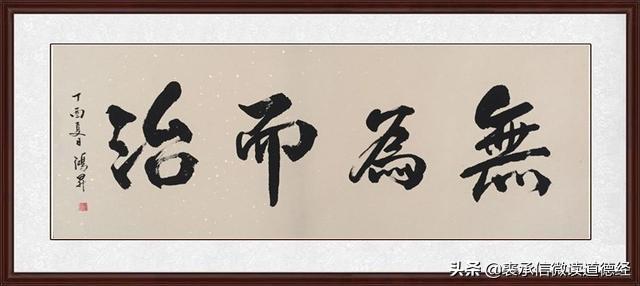 無為而治
丁酉夏日
頭条@裴承信微读道德经